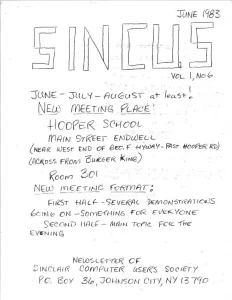 JUNE 1983
SINCUS
VOL 1, NO 6
JUNE - JULY - AUGUST at least!
NEW MEETING PLACE!
HOOPER SCHOOL
MAIN STREET ENDWELL
(NEAR WEST END OF GEO. F. HYWAY - PAST HOOPER RD)
(ACROSS FROM BURGER KING)
ROOM 301
NEW MEETING FORMAT:
FIRST HALF - SEVERAL DEMONSTRATIONS
GOING ON - SOMETHING FOR EVERYONE
SECOND HALF - MAIN TOPIC FOR THE
EVENING
NEWSLETTER OF
SINCLAIR COMPUTER USER'S SOCIETY
P.O. BOX 36, JOHNSON CITY, NY 13790